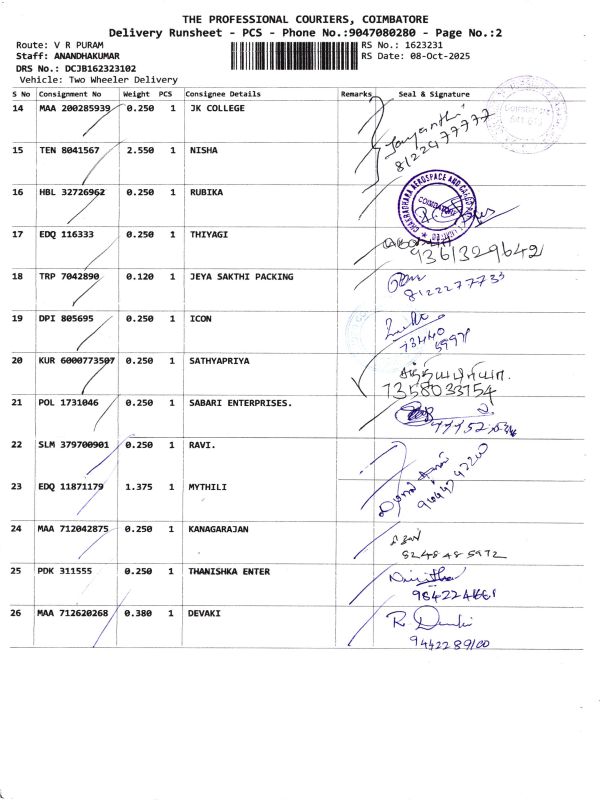 THE PROFESSIONAL COURIERS, COIMBATORE
Delivery Runsheet - PCS - Phone No.:9047080280 - Page No.:2
Route: V R PURAM
RS No.: 1623231
Staff: ANANDHAKUMAR
RS Date: 08-Oct-2025
DRS No.: DCJB162323102
Vehicle: Two Wheeler Delivery
S No Consignment No Weight PCS Consignee Details Remarks Seal & Signature
14 MAA 200285939 0.250 1 JK COLLEGE
Jayanthi
8122977777
15 TEN 8041567 2.550 1 NISHA
16 HBL 32726962 0.250 1 RUBIKA
CHAKRADHARA AEROSPACE AND CARGO
COIMBATORE
17 EDQ 116333 0.250 1 THIYAGI
9361329642
18 TRP 7042890 0.120 1 JEYA SAKTHI PACKING
19 DPI 805695 0.250 1 ICON
20 KUR 6000773507 0.250 1 SATHYAPRIYA
சத்தியபிரியா.
7358033754
21 POL 1731046 0.250 1 SABARI ENTERPRISES.
22 SLM 379700901 0.250 1 RAVI.
23 EDQ 11871179 1.375 1 MYTHILI
24 MAA 712042875 0.250 1 KANAGARAJAN
8248485972
25 PDK 311555 0.250 1 THANISHKA ENTER
26 MAA 712620268 0.380 1 DEVAKI
9442289100